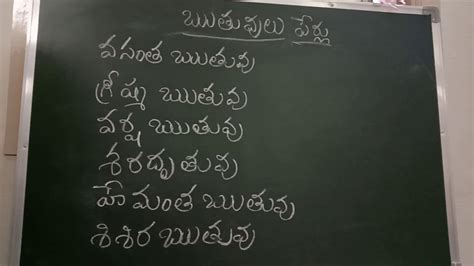 ఋతువులు పేర్లు
వసంత ఋతువు
గ్రీష్మ ఋతువు
వర్ష ఋతువు
శరదృతువు
హేమంత ఋతువు
శిశిర ఋతువు